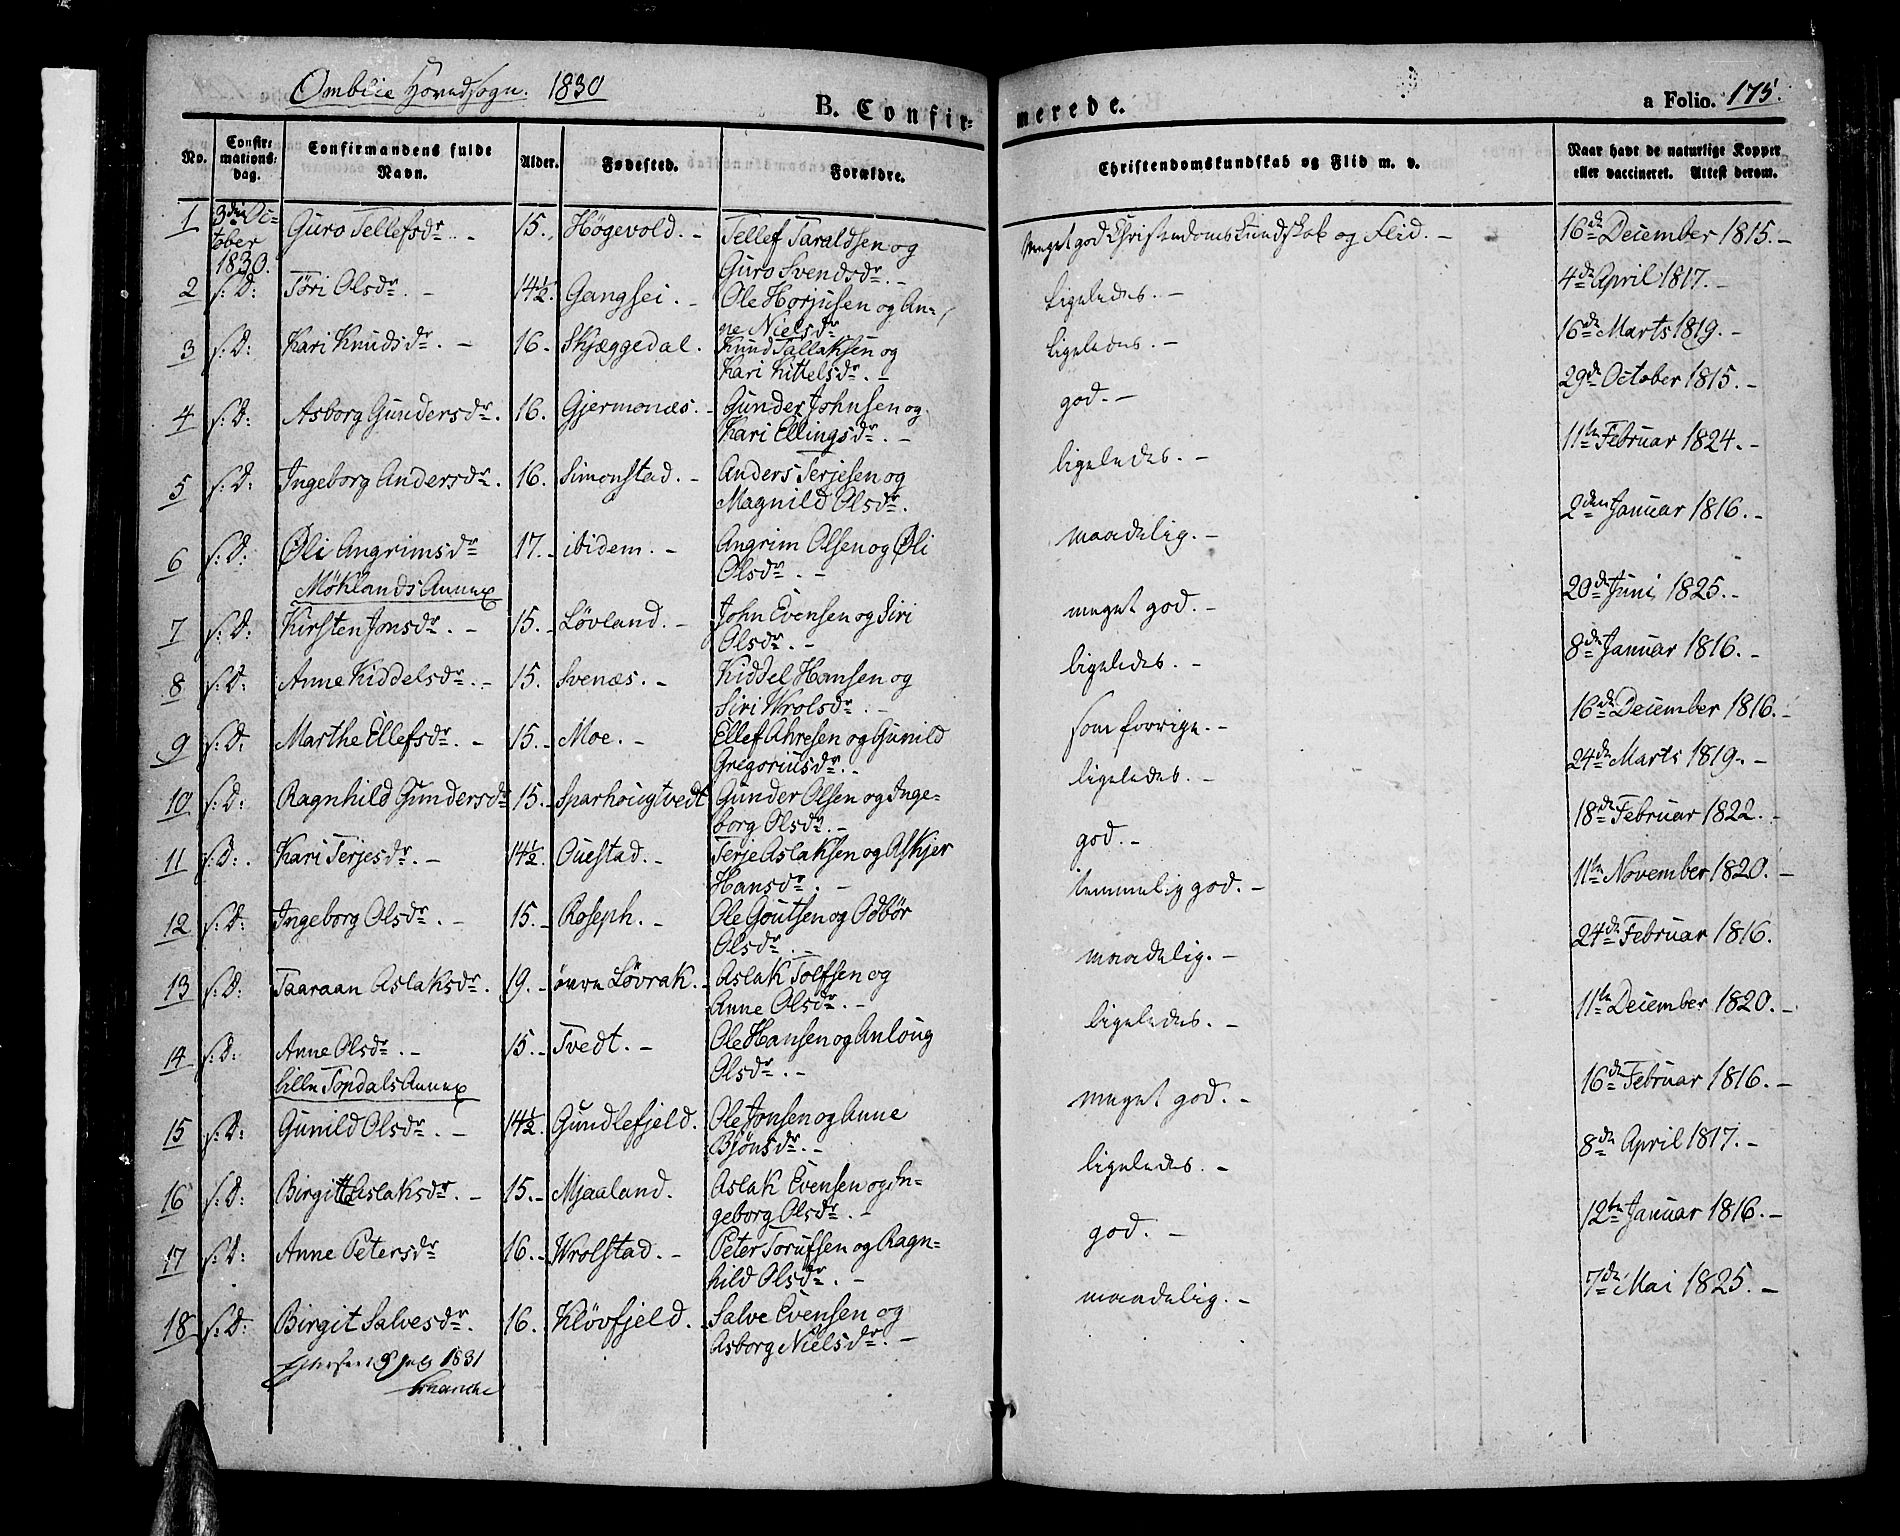 Omblie Hovedsogn. 1830
B. Confir=
merede.
a Folio. 175.
No.
Confir=
mations=
dag.
Confirmandens fulde
Navn.
Alder.
Fødested.
Forældre.
Christendomskundskab og Flid m. v.
Naar havt de naturlige Kopper
eller vaccineret. Attest derom.
1 3die Oc= Guro Tellefsdr. - 15. Högevold. - Tellef Taraldsen og Meget god Christendoms Kundskab og Flid. - 16de December 1815. -
tober
1830. Guro Svendsdr. -
2 s: D: Töri Olsdr. - 14½. Gangsei. - Ole Horjusen og An= Ligeledes. - 4de April 1817. -
ne Nielsdr
3 s: D: Kari Knudsdr. - 16. Skjæggedal. Knud Tallaksen og Ligeledes. - 16de Marts 1819. -
Kari Kittelsdr. -
4 s: D: Asborg Gundersdr. 16. Gjermonæs. - Gunder Johnsen og god. - 29de October 1815. -
Kari Ellingsdr. -
5 s: D: Ingeborg Andersdr. 16. Simonstad. - Anders Terjesen og ligeledes. - 11te Februar 1824. -
Magnild Olsdr.
6 s: D: Øli Angrimsdr 17. - ibidem. - Angrim Olsen og Øli maadelig. - 2den Januar 1816. -
Olsdr. -
Möklands Annex
7 s: D: Kirsten Jonsdr. - 15. - Lövland. - John Evensen og Siri meget god. - 20de Juni 1825. -
Olsdr. -
8 s: D: Anne Kiddelsdr. - 15. Svenæs. - Kiddel Hansen og ligeledes. - 8de Januar 1816. -
Siri Wrolsdr. -
9 s: D: Marthe Ellefsdr. - 15. - Moe. - Ellef Ahresen og Gunild som forrige. - 16de December 1816. -
Gregoriusdr. -
10 s: D: Ragnhild Gundersdr 15. - Sparhougtvedt Gunder Olsen og Inge= ligeledes. - 24de Marts 1819. -
borg Olsdr. -
11 s: D: Kari Terjesdr. - 14½. Ouestad. - Terje Aslaksen og Askjer god. - 18de Februar 1822. -
Hansdr. -
12 s: D: Ingeborg Olsdr. - 15. - Roseph. - Ole Goutsen og Odbör temmelig god. - 11te November 1820. -
Olsdr. -
13 s: D: Taaraan Aslaksdr. 19. - övre Lövrak. - Aslak Tolfsen og maadelig. - 24de Februar 1816.
Anne Olsdr. -
14 s: D: Anne Olsdr. - 15. - Tvedt. - Ole Hansen og Anloug ligeledes. - 11te December 1820. -
Olsdr. -
Lille Topdals Annex
15 s: D: Gunild Olsdr. - 14½. Gundlefjeld. Ole Jonsen og Anne meget god. - 16de Februar 1816. -
Bjönsdr. -
16 s: D: Birgitte Aslaksdr. - 15. - Mjaaland. Aslak Evensen og In= ligeledes. - 8de April 1817. -
geborg Olsdr. -
17 s: D: Anne Petersdr 16. - Wrolstad. - Peter Torufsen og Ragn= god. - 12te Januar 1816. -
hild Olsdr. -
18 s: D: Birgit Salvesdr. 16. Klövfjeld. - Salve Evensen og maadelig. - 7de Mai 1825. -
Asborg Nielsdr. -
1831